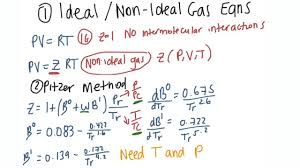 ① Ideal / Non-Ideal Gas Eqns
PV = RT IG Z=1 No intermolecular interactions
PV = ZRT Non-ideal gas Z(P,V,T)
② Pitzer Method
Z = 1 + (B⁰ + ωB¹) Pr/Tr P/Pc T/Tc
dB⁰/dTr = 0.675/Tr^2.6
B⁰ = 0.083 - 0.422/Tr^1.6
dB¹/dTr = 0.722/Tr^5.2
B¹ = 0.139 - 0.172/Tr^4.2 Need T and P